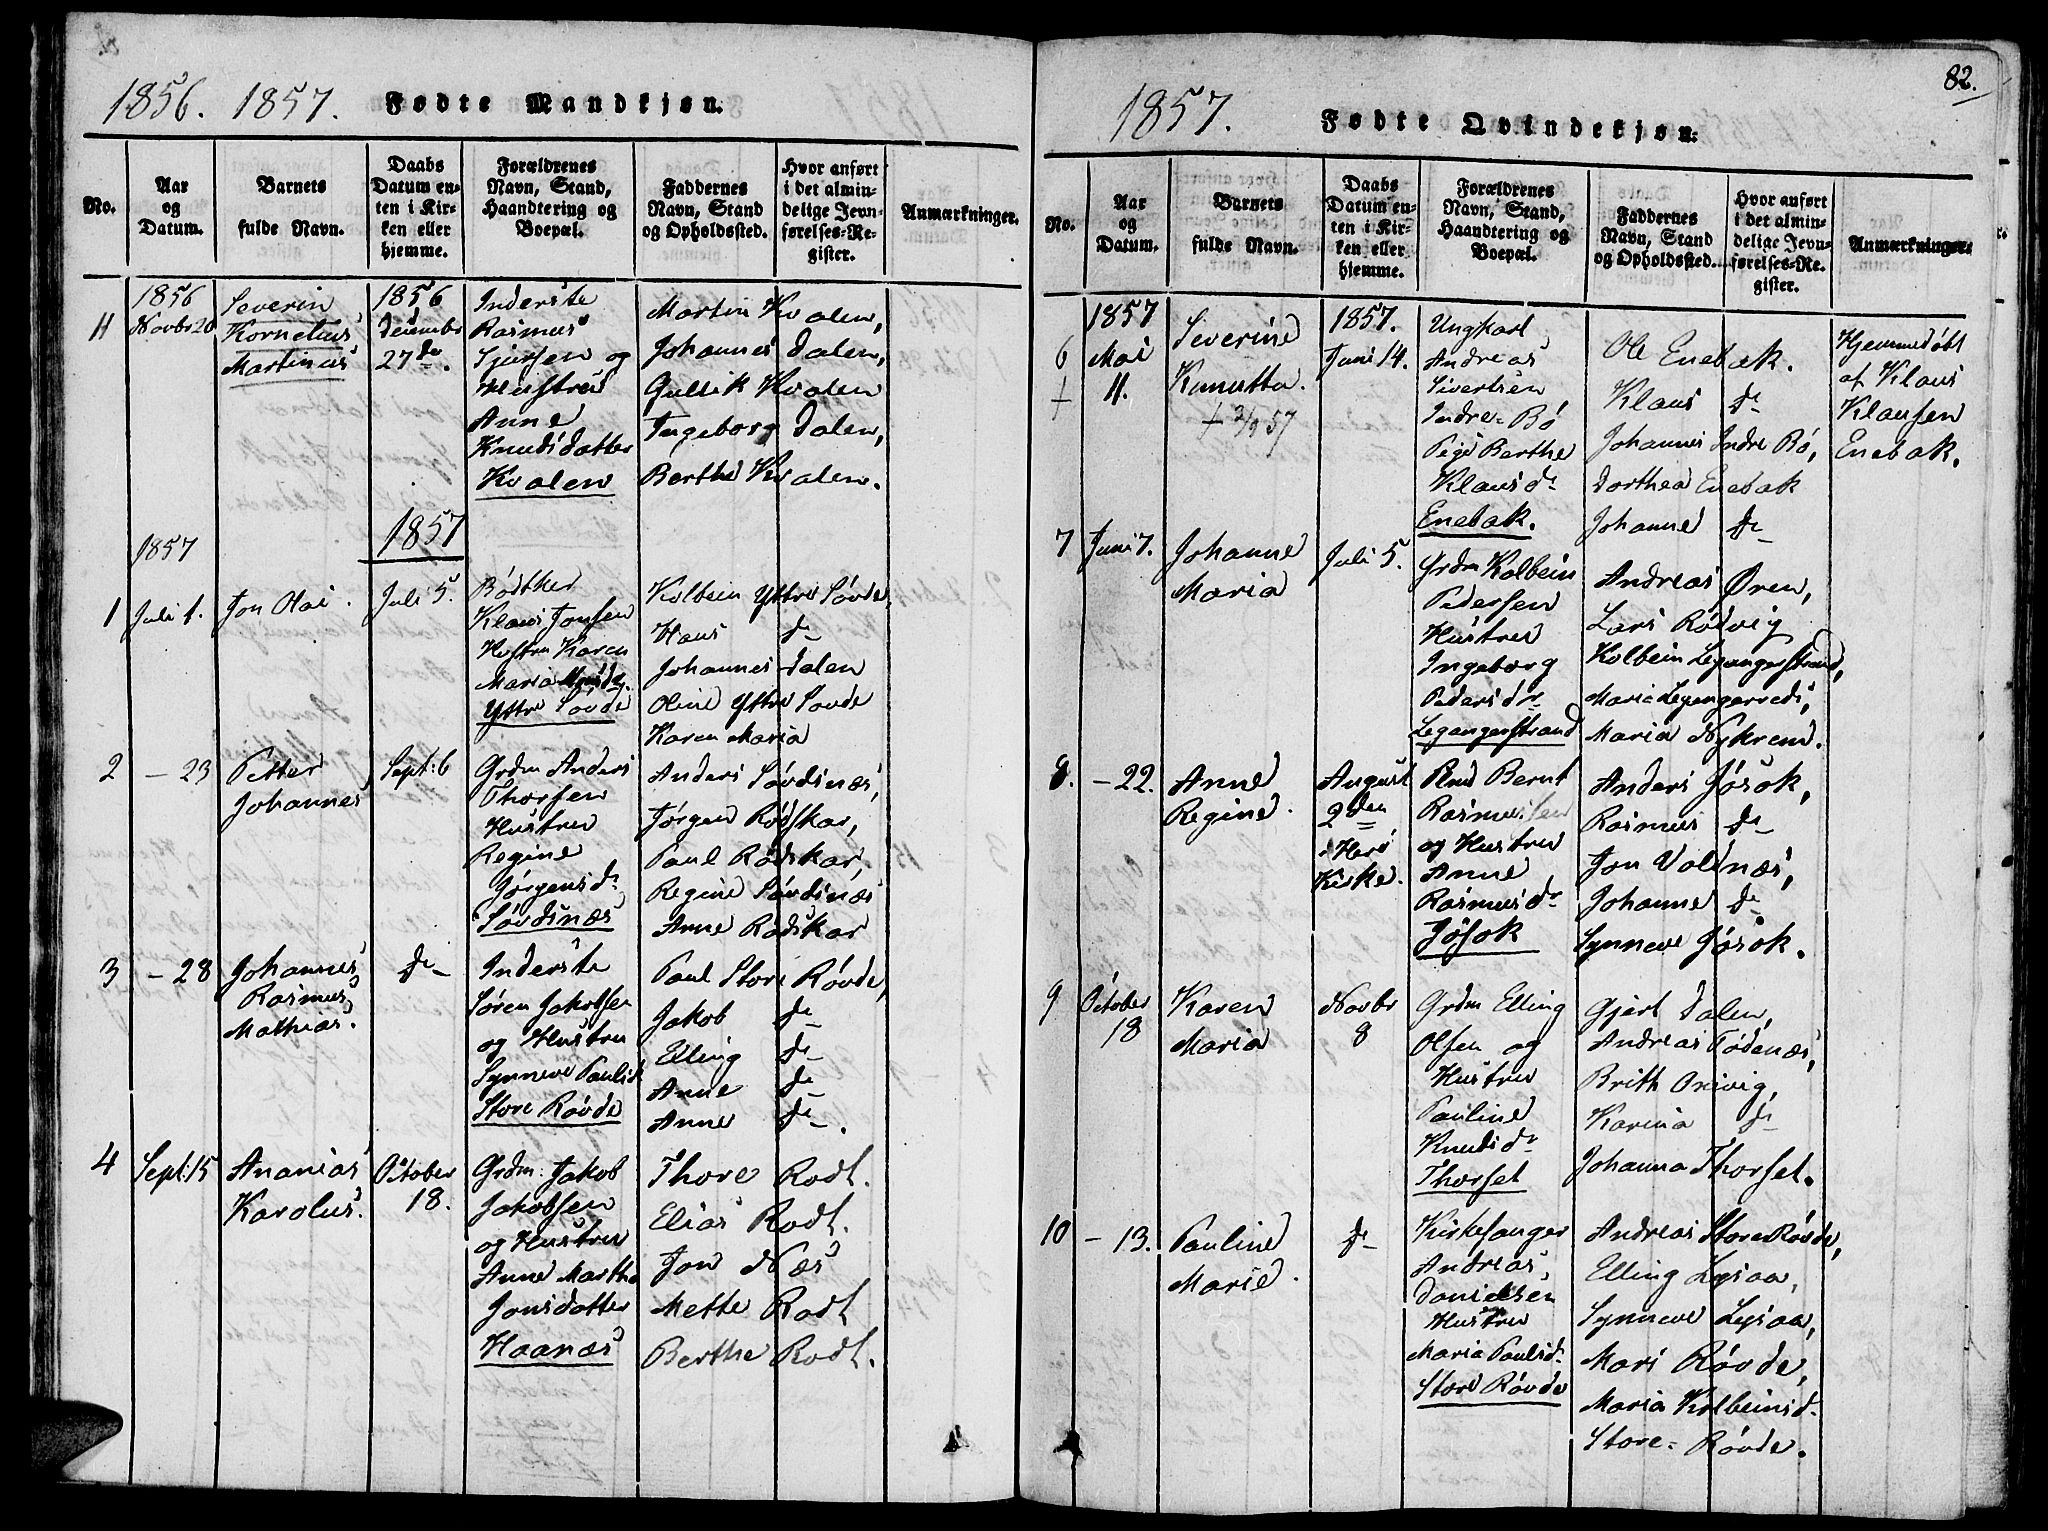 1856. 1857. Fødte Mandkjøn.
No.
Aar
og
Datum.
Barnets
fulde Navn.
Daabs
Datum en-
ten i Kir-
ken eller
hjemme.
Forældrenes
Navn, Stand,
Haandtering og
Boepæl.
Faddernes
Navn, Stand
og Opholdssted.
Hvor anført
i det almin-
delige Jevn-
førelses-Re-
gister.
Anmærkninger.
11
1856
Novbr 20
Severin
Kornelius
Martinus
1856
Decembr
27de.
Inderste
Rasmus
Sjursen og
Hustru
Anne
Knudsdatter
Kvalen
Martin Kvalen,
Johannes Dalen,
Gullik Kvalen
Ingeborg Dalen,
Berthe Kvalen.
1857
1857
1
Juli 1.
Jon Olai.
Juli 5.
Bødtker
Klaus Jonsen
Hustru Karen
Maria
Yttre Søvde
Kolbein Yttre Søvde,
Hans do
Johannes Dalen
Oline Yttre Søvde
Karen Maria
2
- 23
Petter
Johannes
Sept: 6
Grdm Anders
Thorsen
Hustru
Regine
Jørgensdr
Søvdsnæs
Anders Søvdsnæs,
Jørgen Rødskar,
Paul Rødskar,
Regine Søvdsnæs
Anne Rødskar
3
- 28
Johannes
Rasmus
Mathias.
do
Inderste
Søren Jakobsen
og Hustru
Synneve Paulsd
Store Røvde
Paul Store Røvde,
Jakob do
Elling do
Anne do
Anne do.
4
Sept: 15
Ananias
Karolus.
October
18.
Grdm. Jakob
Jakobsen
og Hustru
Anne Marthe
Jonsdatter
Haanæs
Thore Rodt.
Elias Rodt.
Jon Næs
Mette Rodt
Berthe Rodt.
82.
1857. Fødte Qvindekjøn.
No.
Aar
og
Datum.
Barnets
fulde Navn.
Daabs
Datum en-
ten i Kir-
ken eller
hjemme.
Forældrenes
Navn, Stand,
Haandtering og
Boepæl.
Faddernes
Navn, Stand
og Opholdssted.
Hvor anført
i det almin-
delige Jevn-
førelses-Re-
gister.
Anmærkninger.
6
+
1857
Mai
11.
Severine
Knnutta.
1857.
Juni 14.
Ungkarl
Andreas
Sivertsen
Indre-Bø
Pige Berthe
Klausdr
Enebak.
Ole Enebak.
Klaus do
Johannes Indre Bø,
Dorthea Enebak
Johanne do
Hjemmedøbt
af Klaus
Klausen
Enebak.
7
Juni 7.
Johanne
Maria
Juli 5.
Grdm Kolbein
Pedersen
Hustru
Ingeborg
Pedersdr
Legangerstrand
Andreas Øren,
Lars Rødvig
Kolbein Legangerstrand,
Marie Legangerreds,
Maria Nykrem.
8.
- 22.
Anne
Regine.
August
2den
i Herø
Kirke.
Rmd Bernt
Rasmussen
og Hustru
Anne
Rasmusdr
Jøsok
Anders Jøsok,
Rasmus do
Jon Voldnæs,
Johanne do
Synneve Jøsok.
9
October
18
Karen
Maria
Novbr
8
Grdm Elling
Olsen og
Hustru
Pauline
Knudsdr
Thorset
Gjert Dalen,
Andreas Tødenæs,
Brith Orivig,
Karina do
Johanna Thorset.
10
- 13.
Pauline
Marie.
do
Kirkesanger
Andreas
Danielsen
Hustru
Maria Paulsd.
Store Røvde
Andreas Store Røvde,
Elling Lysaa,
Synneve Lysaa,
Mari Røvde,
Maria Kolbeinsd.
Store-Røvde.